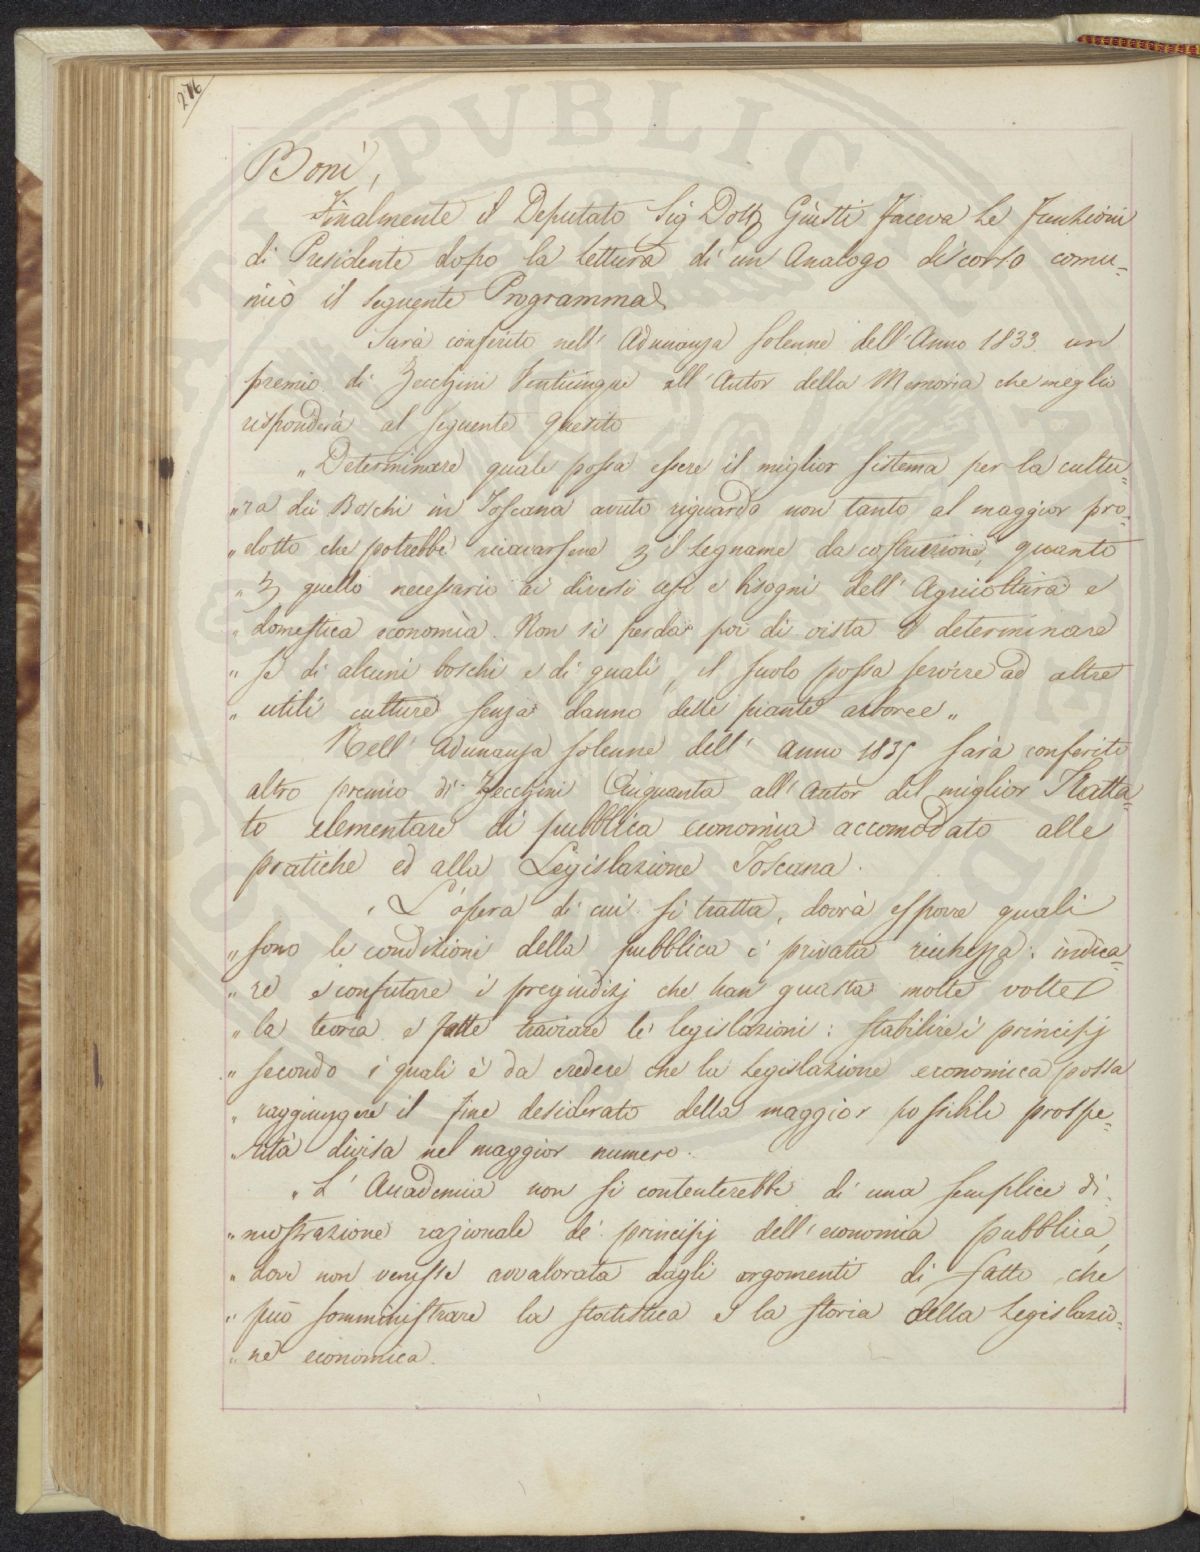 276
Boni,
Finalmente il Deputato Sig Dott Giusti faceva le funzioni
di Presidente dopo la lettura di un Analogo discorso comu=
nicò il seguente Programma
Sarà conferito nell' Adunanza solenne dell'Anno 1833 un
premio di Zecchini Venticinque all'Autor della Memoria che meglio
risponderà al seguente quesito
„Determinare quale possa essere il miglior sistema per la cultu=
„ra dei Boschi in Toscana avuto riguardo non tanto al maggior pro=
„dotto che potrebbe ricavarsene per il legname da costruzione, quanto
„per quello necessario ai diversi usi e bisogni dell'Agricoltura e
„domestica economia. Non si perda poi di vista di determinare
„se di alcuni boschi e di quali, il suolo possa servire ad altre
„utili culture senza danno delle piante arboree„
Nell' Adunanza solenne dell' Anno 1835 sarà conferito
altro premio di Zecchini Cinquanta all'Autor del miglior Tratta=
to elementare di pubblica economia accomodato alle
pratiche ed alla Legislazione Toscana.
„L'opera di cui si tratta, dovrà esporre quali
„sono le condizioni della pubblica e privata ricchezza: indica=
„re e confutare i pregiudizj che han guasta molte volte
„la teoria e fatte traviare le legislazioni: stabilire i principj
„secondo i quali è da credere che la Legislazione economica possa
„raggiungere il fine desiderato della maggior possibile prospe=
„rità divisa nel maggior numero.
„L'Accademia non si contenterebbe di una semplice di=
„mostrazione razionale de' principj dell'economia pubblica,
„dove non venisse avvalorata dagli argomenti di fatto, che
„può somministrare la statistica e la storia della Legislazio=
„ne economica.